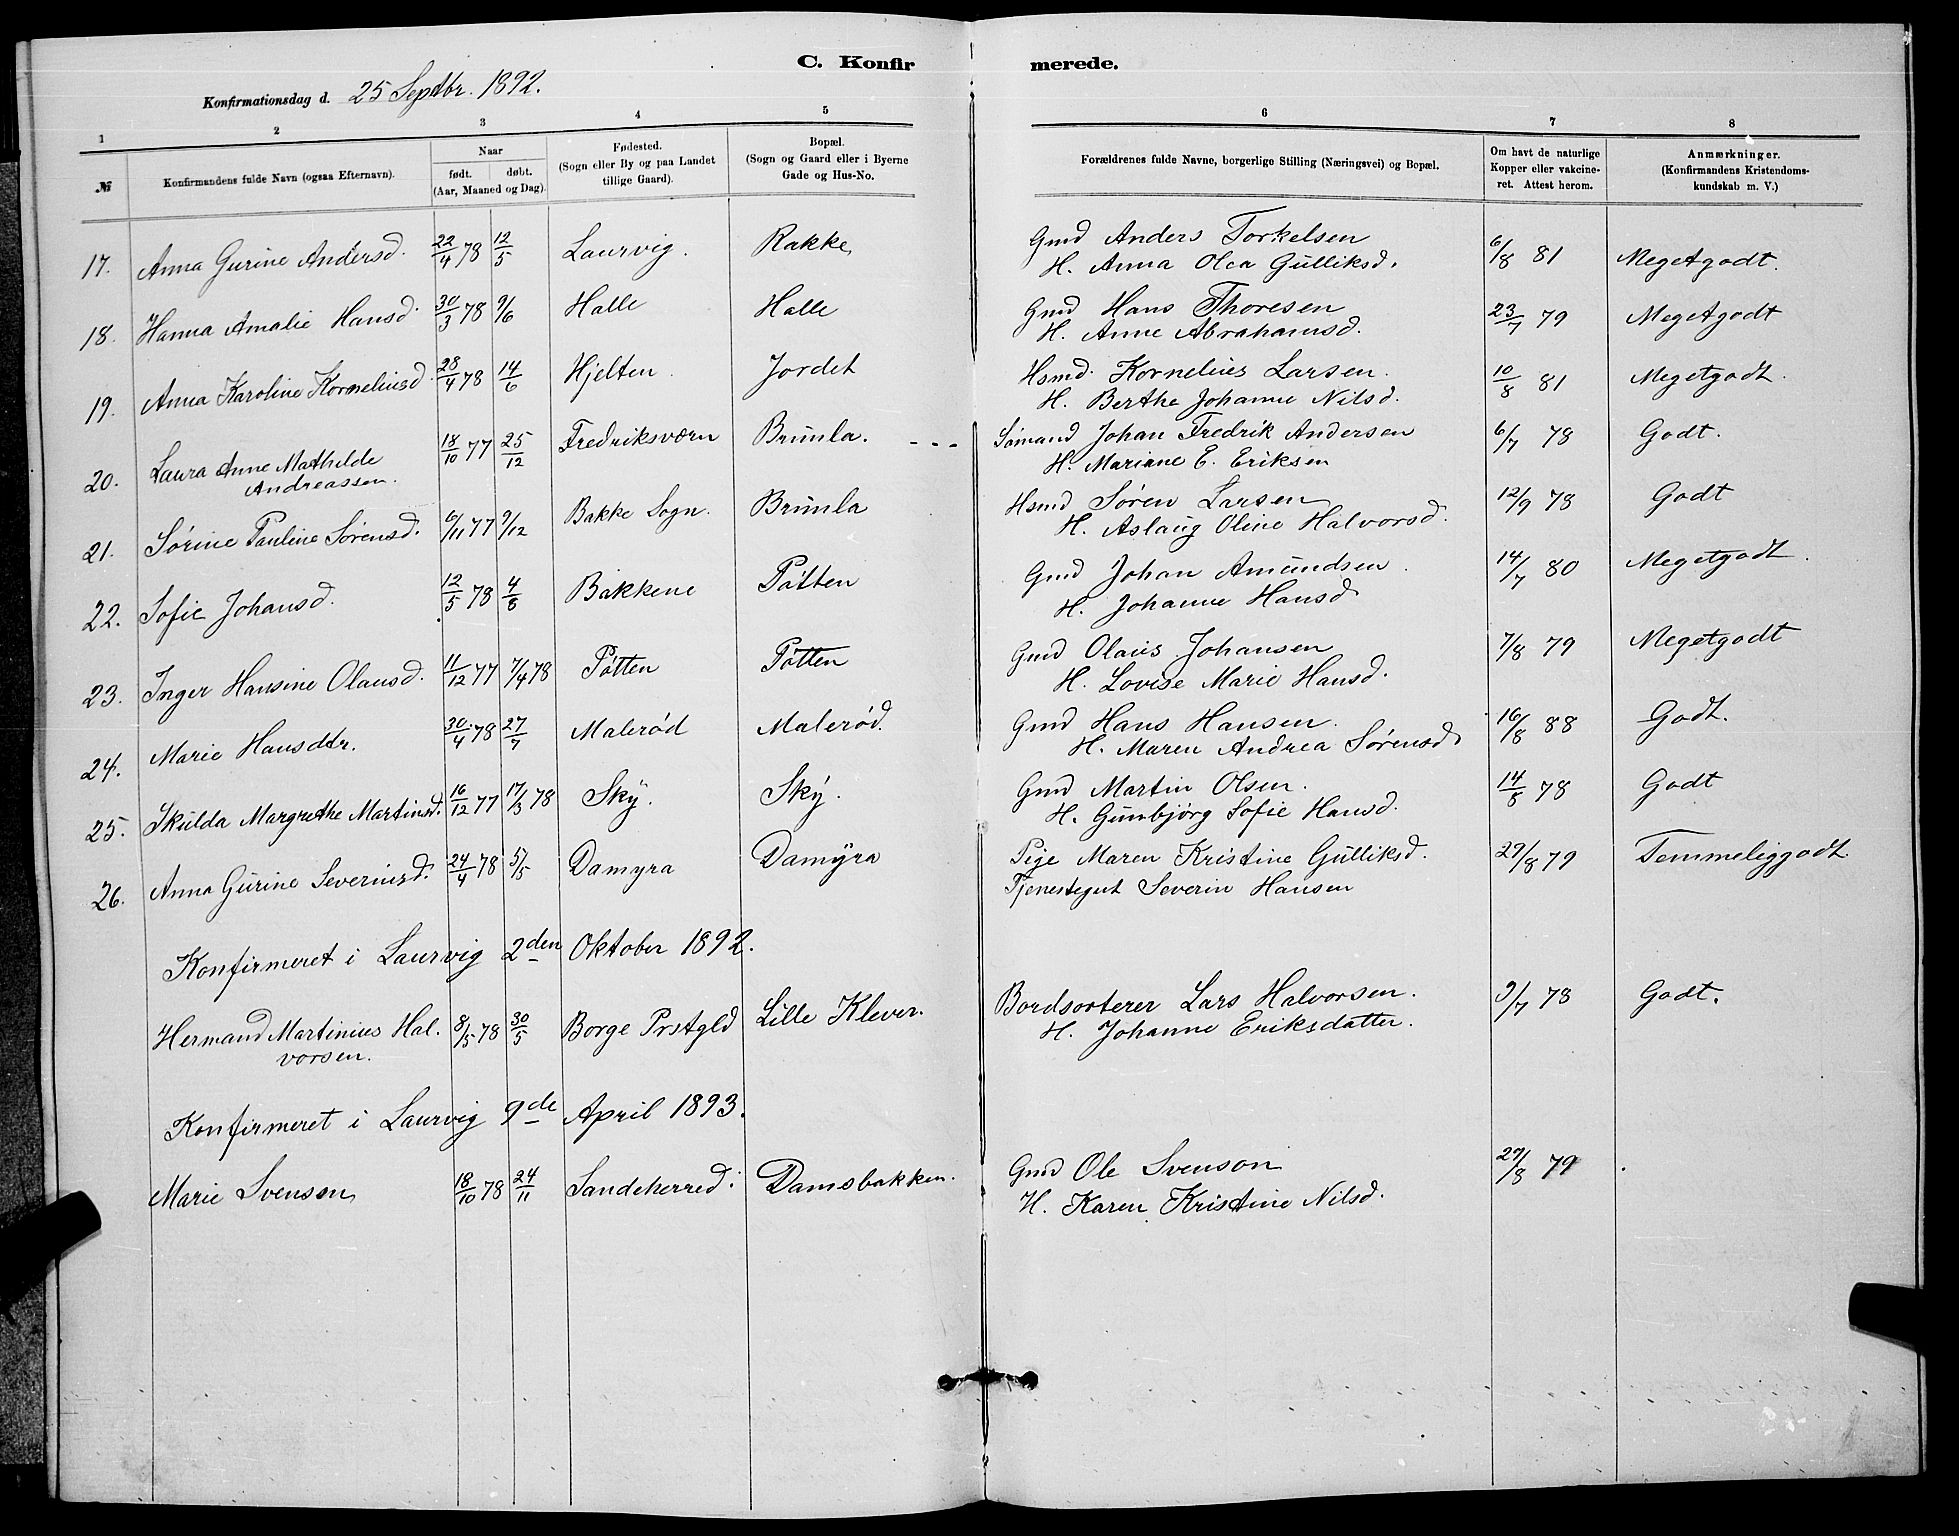 C. Konfirmerede.
Konfirmationsdag d. 25 Septbr. 1892.
1 2 3 4 5 6 7 8
№ Konfirmandens fulde Navn (ogsaa Efternavn). Naar født. døbt. (Aar, Maaned og Dag). Fødested. (Sogn eller By og paa Landet tillige Gaard). Bopæl. (Sogn og Gaard eller i Byerne Gade og Hus-No. Forældrenes fulde Navne, borgerlige Stilling (Næringsvei) og Bopæl. Om havt de naturlige Kopper eller vakcineret. Attest herom. Anmærkninger. (Konfirmandens Kristendomskundskab m. V.)
17. Anna Gurine Andersd. 22/4 78 12/5 Laurvig. Rakke Gmd Anders Torkelsen 6/8 81 Megetgodt.
H. Anna Olea Gulliksd.
18. Hanna Amalie Hansd. 30/3 78 9/6 Halle Halle Gmd Hans Thoresen 23/7 79 Megetgodt
H. Anne Abrahamsd.
19. Anna Karoline Kornelius d. 28/4 78 14/6 Hjelten. Jordet Hsmd. Kornelius Larsen. 10/8 81 Megetgodt.
H. Berthe Johanne Nilsd.
20. Laura Anne Mathilde 18/10 77 25/12 Fredriksværn Brunla. - - - Sømand Johan Fredrik Andersen 6/7 78 Godt.
Andreassen. H. Mariane E. Eriksen
21. Sørine Pauline Sørensd. 6/11 77 9/12 Bakke Sogn. Brunla Hsmd Søren Larsen 12/9 78 Godt
H. Aslaug Oline Halvorsd.
22. Sofie Johansd. 12/5 78 4/8 Bakkene Pøtten Gmd Johan Amundsen. 14/7 80 Megetgodt.
H. Johanne Hansd
23. Inger Hansine Olausd. 11/12 77 7/4 78 Pøtten Pøtten Gmd Olaus Johansen 7/8 79 Megetgodt
H. Lovise Marie Hansd.
24. Marie Hansdtr. 30/4 78 27/7 Malerød Malerød. Gmd Hans Hansen. 16/8 88 Godt.
H. Maren Andrea Sørensd
25. Skulda Margrethe Martinsd. 16/12 77 17/3 78 Sky. Sky. Gmd Martin Olsen. 14/8 78 Godt
H. Gunbjørg Sofie Hansd.
26. Anna Gurine Severinsd. 24/4 78 5/5 Damyra Damyra Pige Maren Kristine Gulliksd. 29/8 79 Temmeliggodt
Tjenestegut Severin Hansen
Konfirmeret i Laurvig 2den Oktober 1892.
Hermand Martinius Hal- 8/5 78 30/5 Borge Prstgld Lille Klever. Bordsorterer Lars Halvorsen. 9/7 78 Godt.
vorsen. H. Johanne Eriksdatter.
Konfirmeret i Laurvig 9de April 1893.
Marie Svenson 18/10 78 24/11 Sandeherred. Damsbakken. Gmd Ole Svenson 29/8 79
H. Karen Kristine Nilsd.